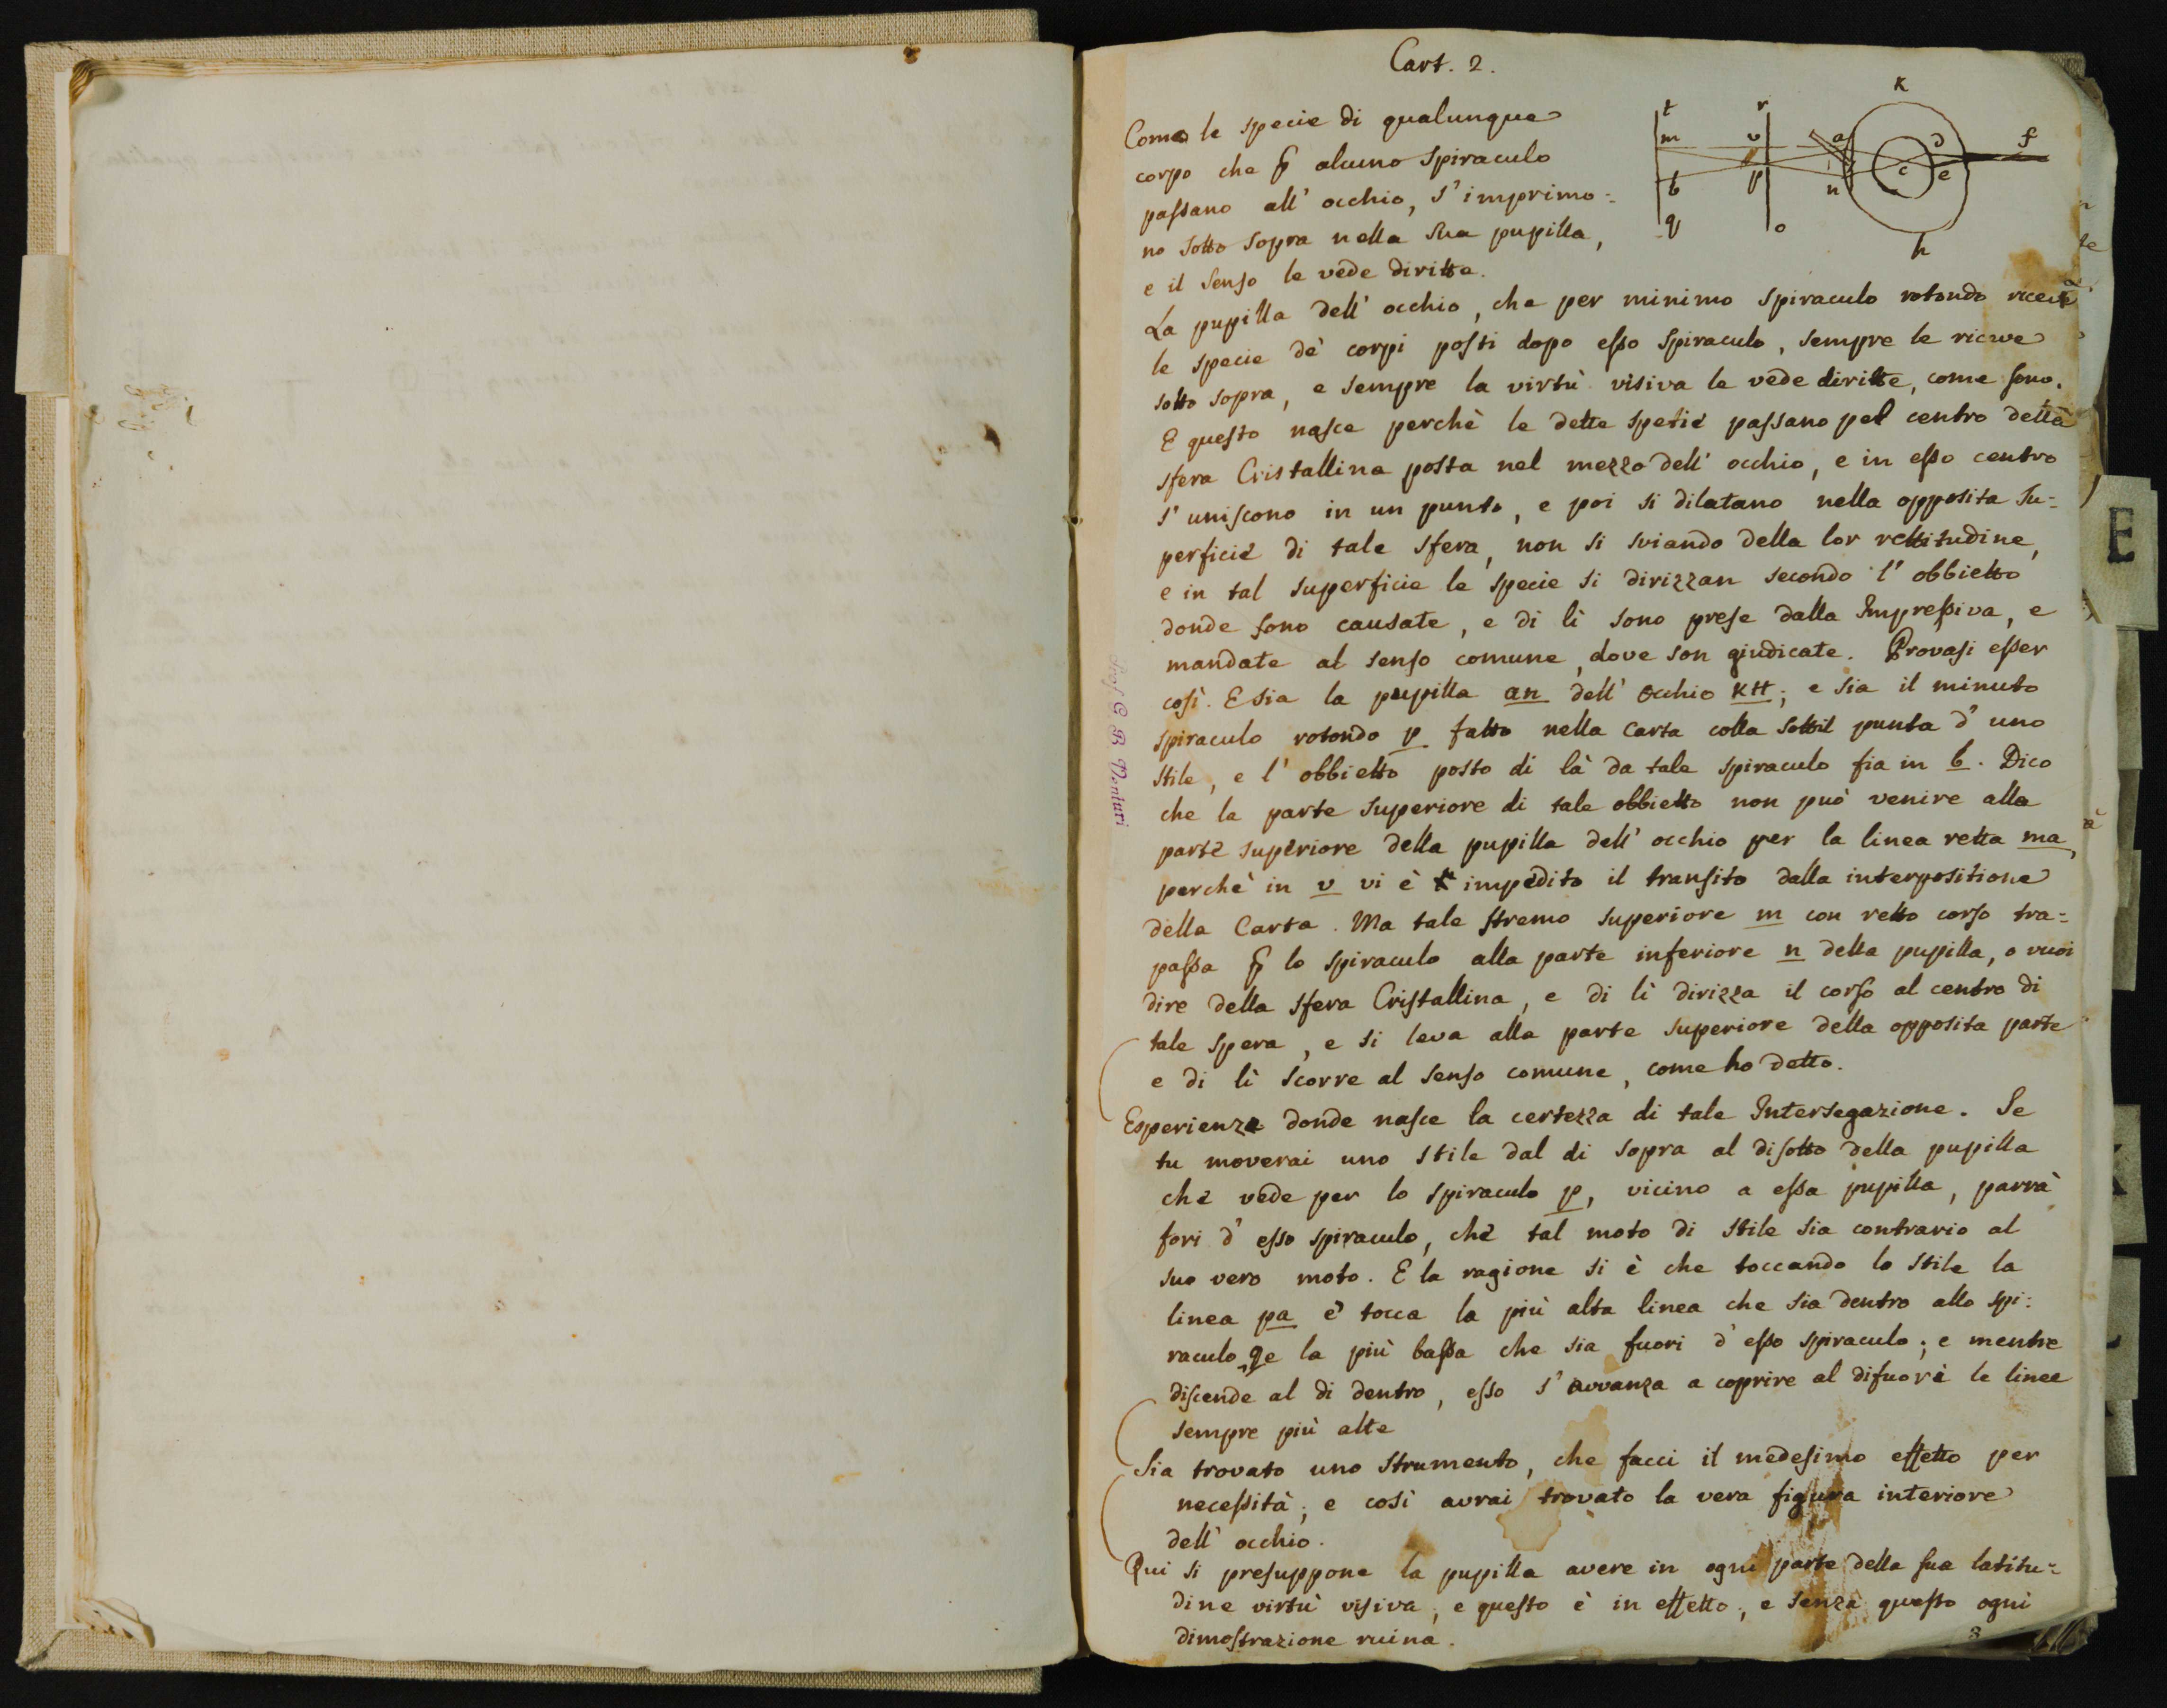 Cart. 2.
Come le specie di qualunque
corpo che ꝑ alcuno spiraculo
passano all' occhio, s' imprimo=
no sotto sopra nella sua pupilla,
e il senso le vede diritte.
t
m
b
q
r
v
p
o
a
n
K
h
c
d
e
f
La pupilla dell' occhio, che per minimo spiraculo rotondo riceve
le specie de' corpi posti dopo esso spiraculo, sempre le riceve
sotto sopra, e sempre la virtù visiva le vede diritte, come sono.
E questo nasce perchè le dette spetie passano pel centro della
sfera Cristallina posta nel mezzo dell' occhio, e in esso centro
s' uniscono in un punto, e poi si dilatano nella opposita su=
perficie di tale sfera, non si sviando della lor rettitudine,
e in tal superficie le specie si dirizzan secondo l' obbietto
donde sono causate, e di lì sono prese dalla Impressiva, e
mandate al senso comune, dove son giudicate. Provasi esser
così. E sia la pupilla an dell' occhio KH; e sia il minuto
spiraculo rotondo p fatto nella Carta colla sottil punta d' uno
stile, e l' obbietto posto di là da tale spiraculo sia in b. Dico
che la parte superiore di tale obbietto non può venire alla
parte superiore della pupilla dell' occhio per la linea retta ma,
perchè in v vi è impedito il transito dalla interpositione
della Carta. Ma tale stremo superiore m con retto corso tra=
passa ꝑ lo spiraculo alla parte inferiore n della pupilla, o vuoi
dire della sfera Cristallina, e di lì dirizza il corso al centro di
tale spera, e si leva alla parte superiore della opposita parte
e di lì scorre al senso comune, come ho detto.
Esperienza donde nasce la certezza di tale Intersegazione. Se
tu moverai uno stile dal di sopra al disotto della pupilla
che vede per lo spiraculo p, vicino a essa pupilla, parrà
fori d' esso spiraculo, che tal moto di stile sia contrario al
suo vero moto. E la ragione si è che toccando lo stile la
linea pa e' tocca la più alta linea che sia dentro allo spi=
raculo, e la più bassa che sia fuori d' esso spiraculo; e mentre
discende al di dentro, esso s' avvanza a coprire al difuori le linee
sempre più alte
Sia trovato uno strumento, che facci il medesimo effetto per
necessità; e così avrai trovato la vera figura interiore
dell' occhio.
Qui si presuppone la pupilla avere in ogni parte della sua latitu=
dine virtù visiva; e questo è in effetto; e senza questo ogni
dimostrazione ruina.
8
E